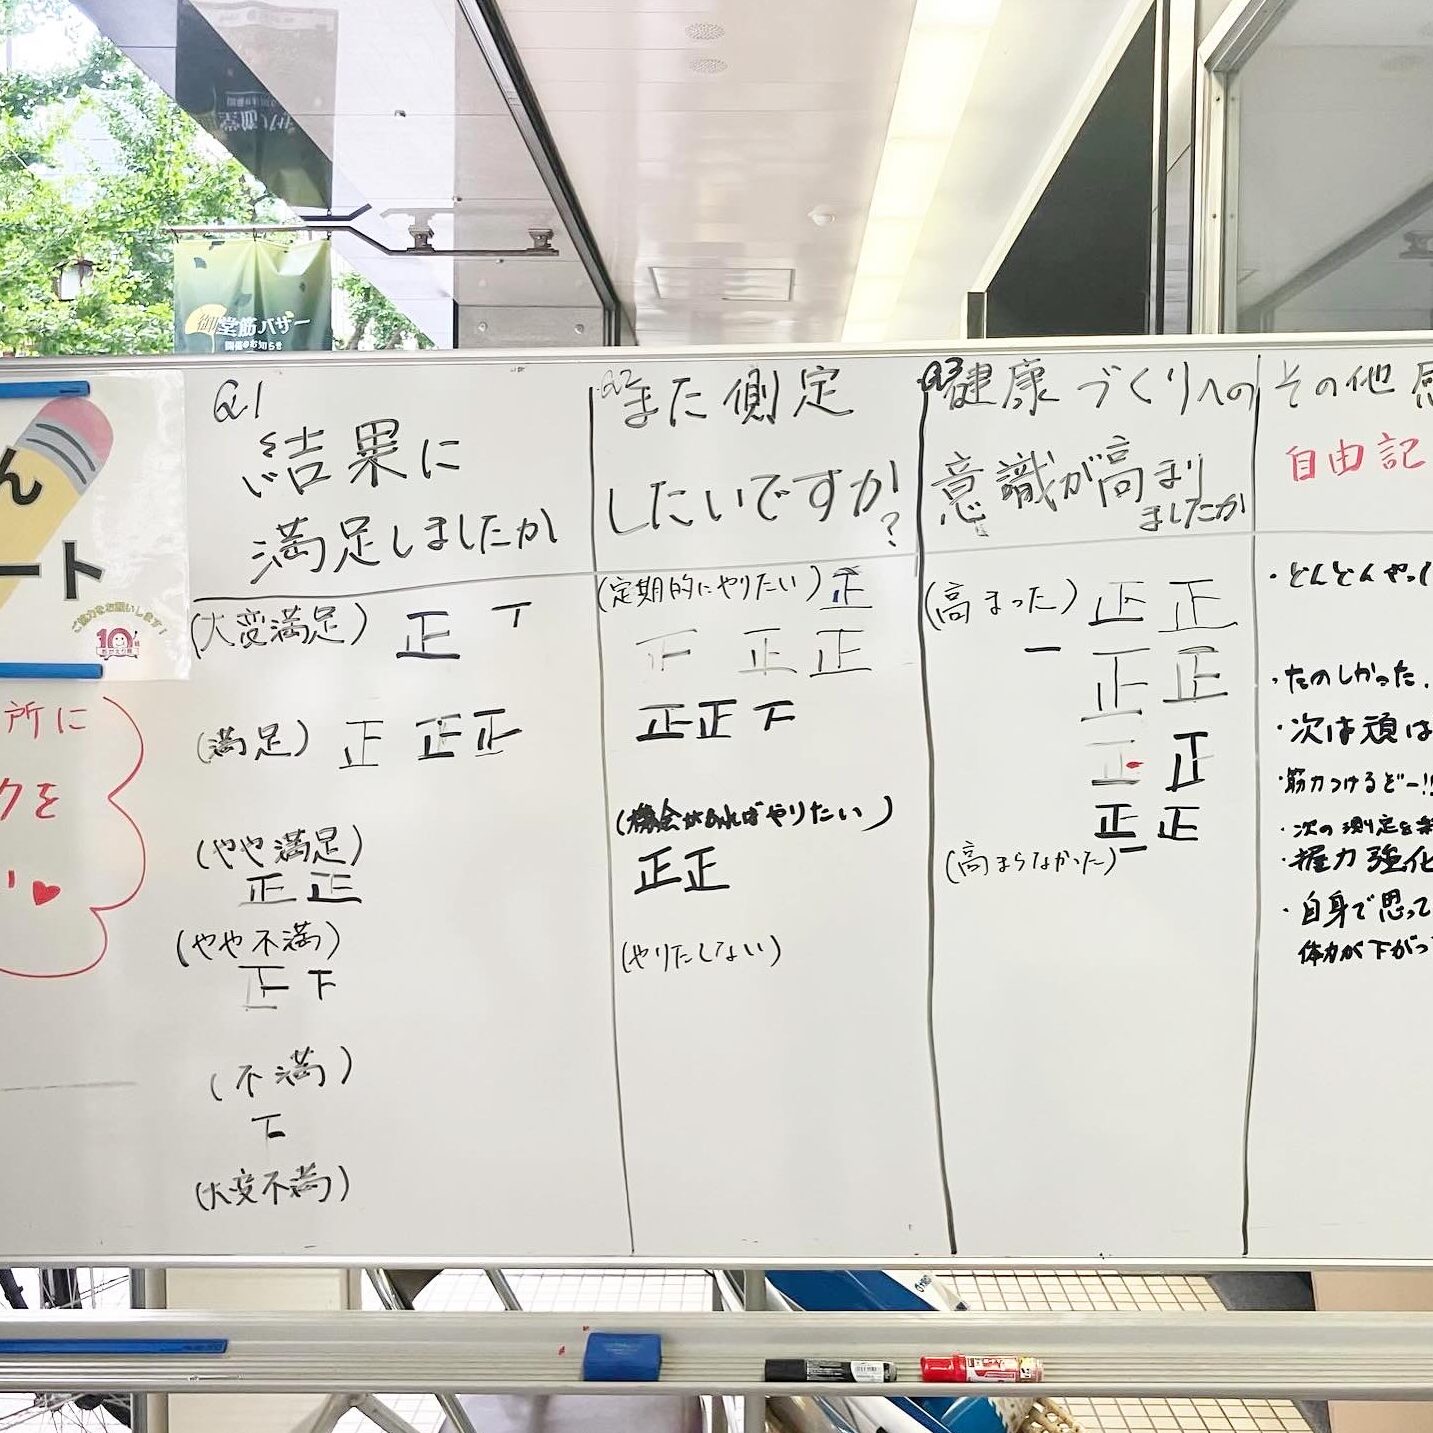 御堂筋バザー
開催のお知らせ
ん
ート
ご協力をお願いします!
10
所に
クを
Q1
結果に
満足しましたか
(大変満足) 正 丅
(満足) 正 正 正
(やや満足)
正 正
(やや不満)
正 下
(不満)
(大変不満)
Q2 また測定
したいですか?
(定期的にやりたい) 正
正 正 正
正 正 下
(機会があればやりたい)
正 正
(やりたくない)
Q3 健康づくりへの
意識が高まり
ましたか
(高まった) 正 正
一 正 正
正 正
正 正
(高まらなかった) 一
その他 感
自由記
・どんどんやっ
・たのしかった.
・次は頑は
・筋力つけるどー!!
・次の測定を
・握力強化
・自身で思って
体力が下がっ